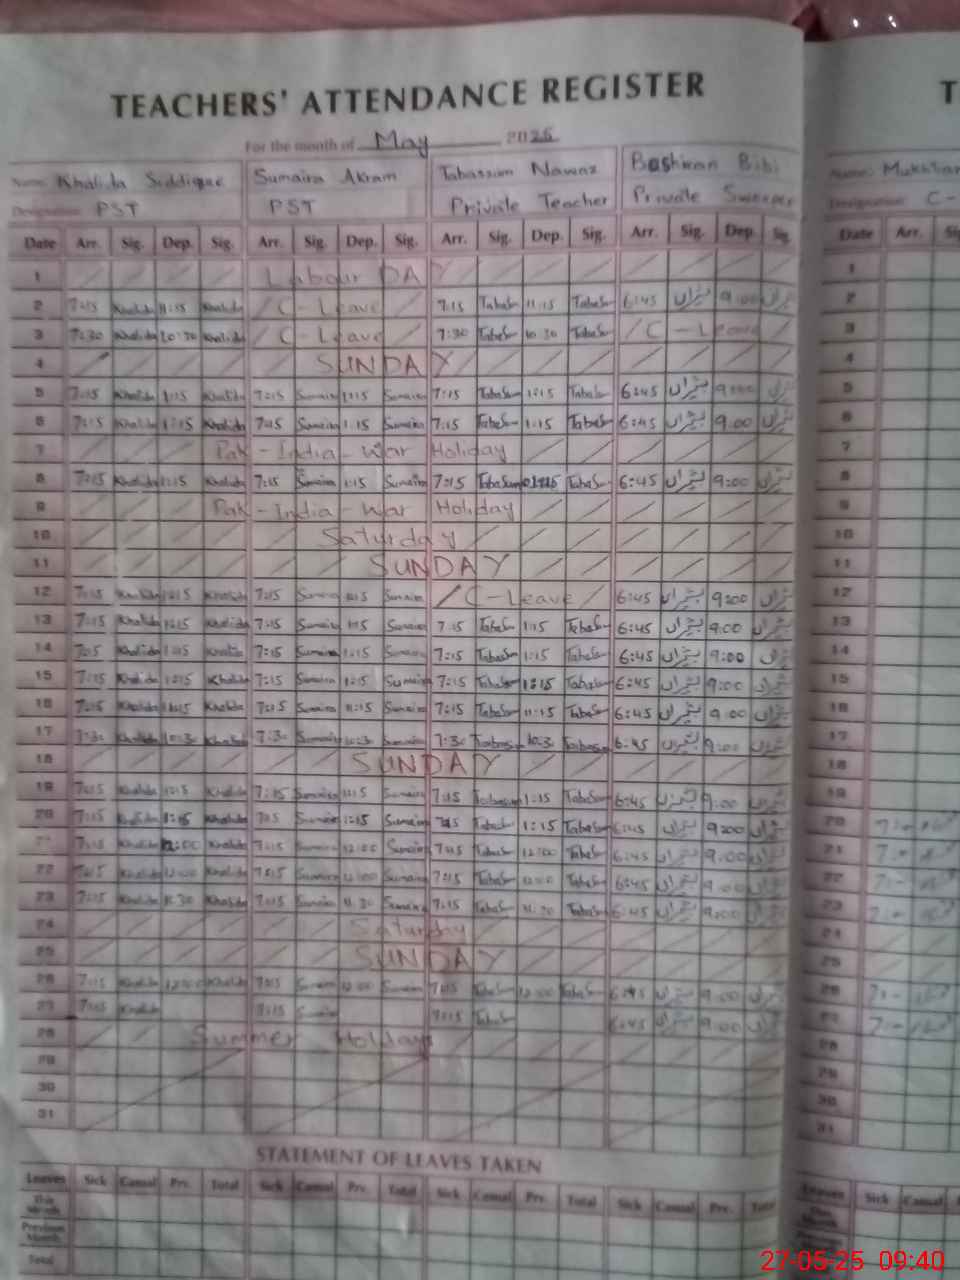 TEACHERS' ATTENDANCE REGISTER
For the month of May 2025
Name: Khalida Siddique Sumaira Akram Tabassum Nawaz Bashiran Bibi Name: Mukhtiar
Designation: PST PST Private Teacher Private Sweeper Designation: C-
Date Arr. Sig. Dep. Sig. Arr. Sig. Dep. Sig. Arr. Sig. Dep. Sig. Arr. Sig. Dep. Sig Date Arr.
1 Labour DAY 1
2 7:15 Khalida 11:15 Khalida C-Leave 7:15 Tabasm 11:15 Tabasm 6:45 بشیراں 9:00 بشیراں 2
3 7:30 Khalida 10:30 Khalida C-Leave 7:30 Tabasm 10:30 Tabasm C-Leave 3
4 SUNDAY 4
5 7:15 Khalida 1:15 Khalida 7:15 Sumaira 1:15 Sumaira 7:15 Tabasm 1:15 Tabasm 6:45 بشیراں 9:00 بشیراں 5
6 7:15 Khalida 1:15 Khalida 7:15 Sumaira 1:15 Sumaira 7:15 Tabasm 1:15 Tabasm 6:45 بشیراں 9.00 بشیراں 6
7 Pak-India-War Holiday 7
8 7:15 Khalida 1:15 Khalida 7:15 Sumaira 1:15 Sumaira 7:15 Tabasum Tabasm 6:45 بشیراں 9:00 بشیراں 8
9 Pak-India-War Holiday 9
10 Saturday 10
11 SUNDAY 11
12 7:15 Khalida 1:15 Khalida 7:15 Sumaira 1:15 Sumaira C-Leave 6:45 بشیراں 9:00 بشیراں 12
13 7:15 Khalida 1:15 Khalida 7:15 Sumaira 1:15 Sumaira 7:15 Tabasm 1:15 Tabasm 6:45 بشیراں 9:00 بشیراں 13
14 7:15 Khalida 1:15 Khalida 7:15 Sumaira 1:15 Sumaira 7:15 Tabasm 1:15 Tabasm 6:45 بشیراں 9:00 بشیراں 14
15 7:15 Khalida 1:15 Khalida 7:15 Sumaira 1:15 Sumaira 7:15 Tabasm 1:15 Tabasm 6:45 بشیراں 9:00 بشیراں 15
16 7:15 Khalida 11:15 Khalida 7:15 Sumaira 11:15 Sumaira 7:15 Tabasm 11:15 Tabasm 6:45 بشیراں 9:00 بشیراں 16
17 7:30 Khalida 10:30 Khalida 7:30 Sumaira 10:30 Sumaira 7:30 Tabasm 10:30 Tabasm 6:45 بشیراں 9:00 بشیراں 17
18 SUNDAY 18
19 7:15 Khalida 1:15 Khalida 7:15 Sumaira 1:15 Sumaira 7:15 Tabasum 1:15 Tabasum 6:45 بشیراں 9:00 بشیراں 19
20 7:15 Khalida 1:15 Khalida 7:15 Sumaira 1:15 Sumaira 7:15 Tabasm 1:15 Tabasum 6:45 بشیراں 9:00 بشیراں 20
7:15 Khalida 12:00 Khalida 7:15 Sumaira 12:00 Sumaira 7:15 Tabasm 12:00 Tabasm 6:45 بشیراں 9:00 بشیراں 21
22 7:15 Khalida 12:00 Khalida 7:15 Sumaira 12:00 Sumaira 7:15 Tabasm 12:00 Tabasm 6:45 بشیراں 9:00 بشیراں 22
23 7:15 Khalida 11:30 Khalida 7:15 Sumaira 11:30 Sumaira 7:15 Tabasm 11:30 Tabasm 6:45 بشیراں 9:00 بشیراں 23
24 Saturday 24
25 SUNDAY 25
26 7:15 Khalida 12:00 Khalida 7:15 Sumaira 12:00 Sumaira 7:15 Tabasm 12:00 Tabasm 6:45 بشیراں 9:00 بشیراں 26
27 7:15 Khalida 7:15 Sumaira 7:15 Tabasm 6:45 بشیراں 9:00 بشیراں 27
28 Summer Holidays 28
29 29
30 30
31 31
STATEMENT OF LEAVES TAKEN
Leaves Sick Casual Prv. Total Sick Casual Prv. Total Sick Casual Prv. Total Sick Casual Prv. Total Leaves Sick Casual
This Month
Previous Month
Total
27-05-25 09:40